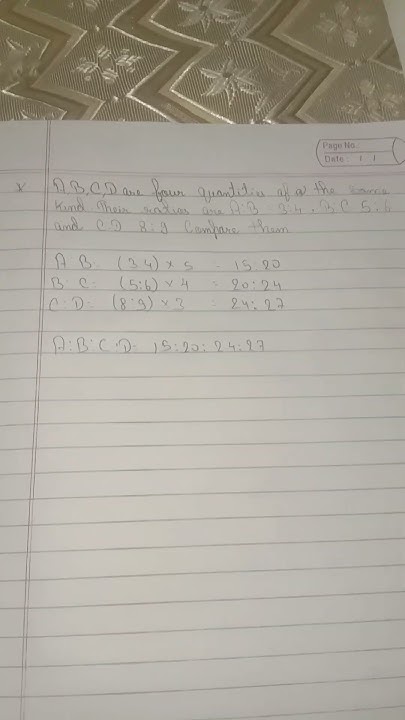 Page No.
Date : / /
x A B, C, D are four quantities of a the same
kind Their ratios are A:B = 3:4, B.C 5:6
and C.D 8:9 Compare them
A B: (3 4) x 5 = 15:20
B C: (5:6) x 4 = 20:24
C:D: (8:9) x 3 = 24:27
A:B:C:D: 15:20:24:27